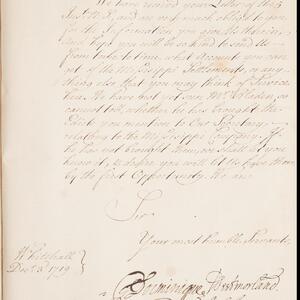 We have received your Letter of the 5
Inst. N.S. and are very much obliged to you
for the Information you give Us therein,
and hope you will be so kind to send Us
from time to time, what Account you can
get of the Missisippi Settlements, or any
thing else that you may think of Service
here. We have not yet seen Mr. Holden, so
cannot tell, whether he has brought the
Edicts you mention to Our Secretary,
relating to the Missisippi Company. If
he has not brought them, we shall let you
know it, & desire you will let Us have them
by the first Opportunity. We are
Sir
Your most humble Servants,
Whitehall
1719
Westmoreland